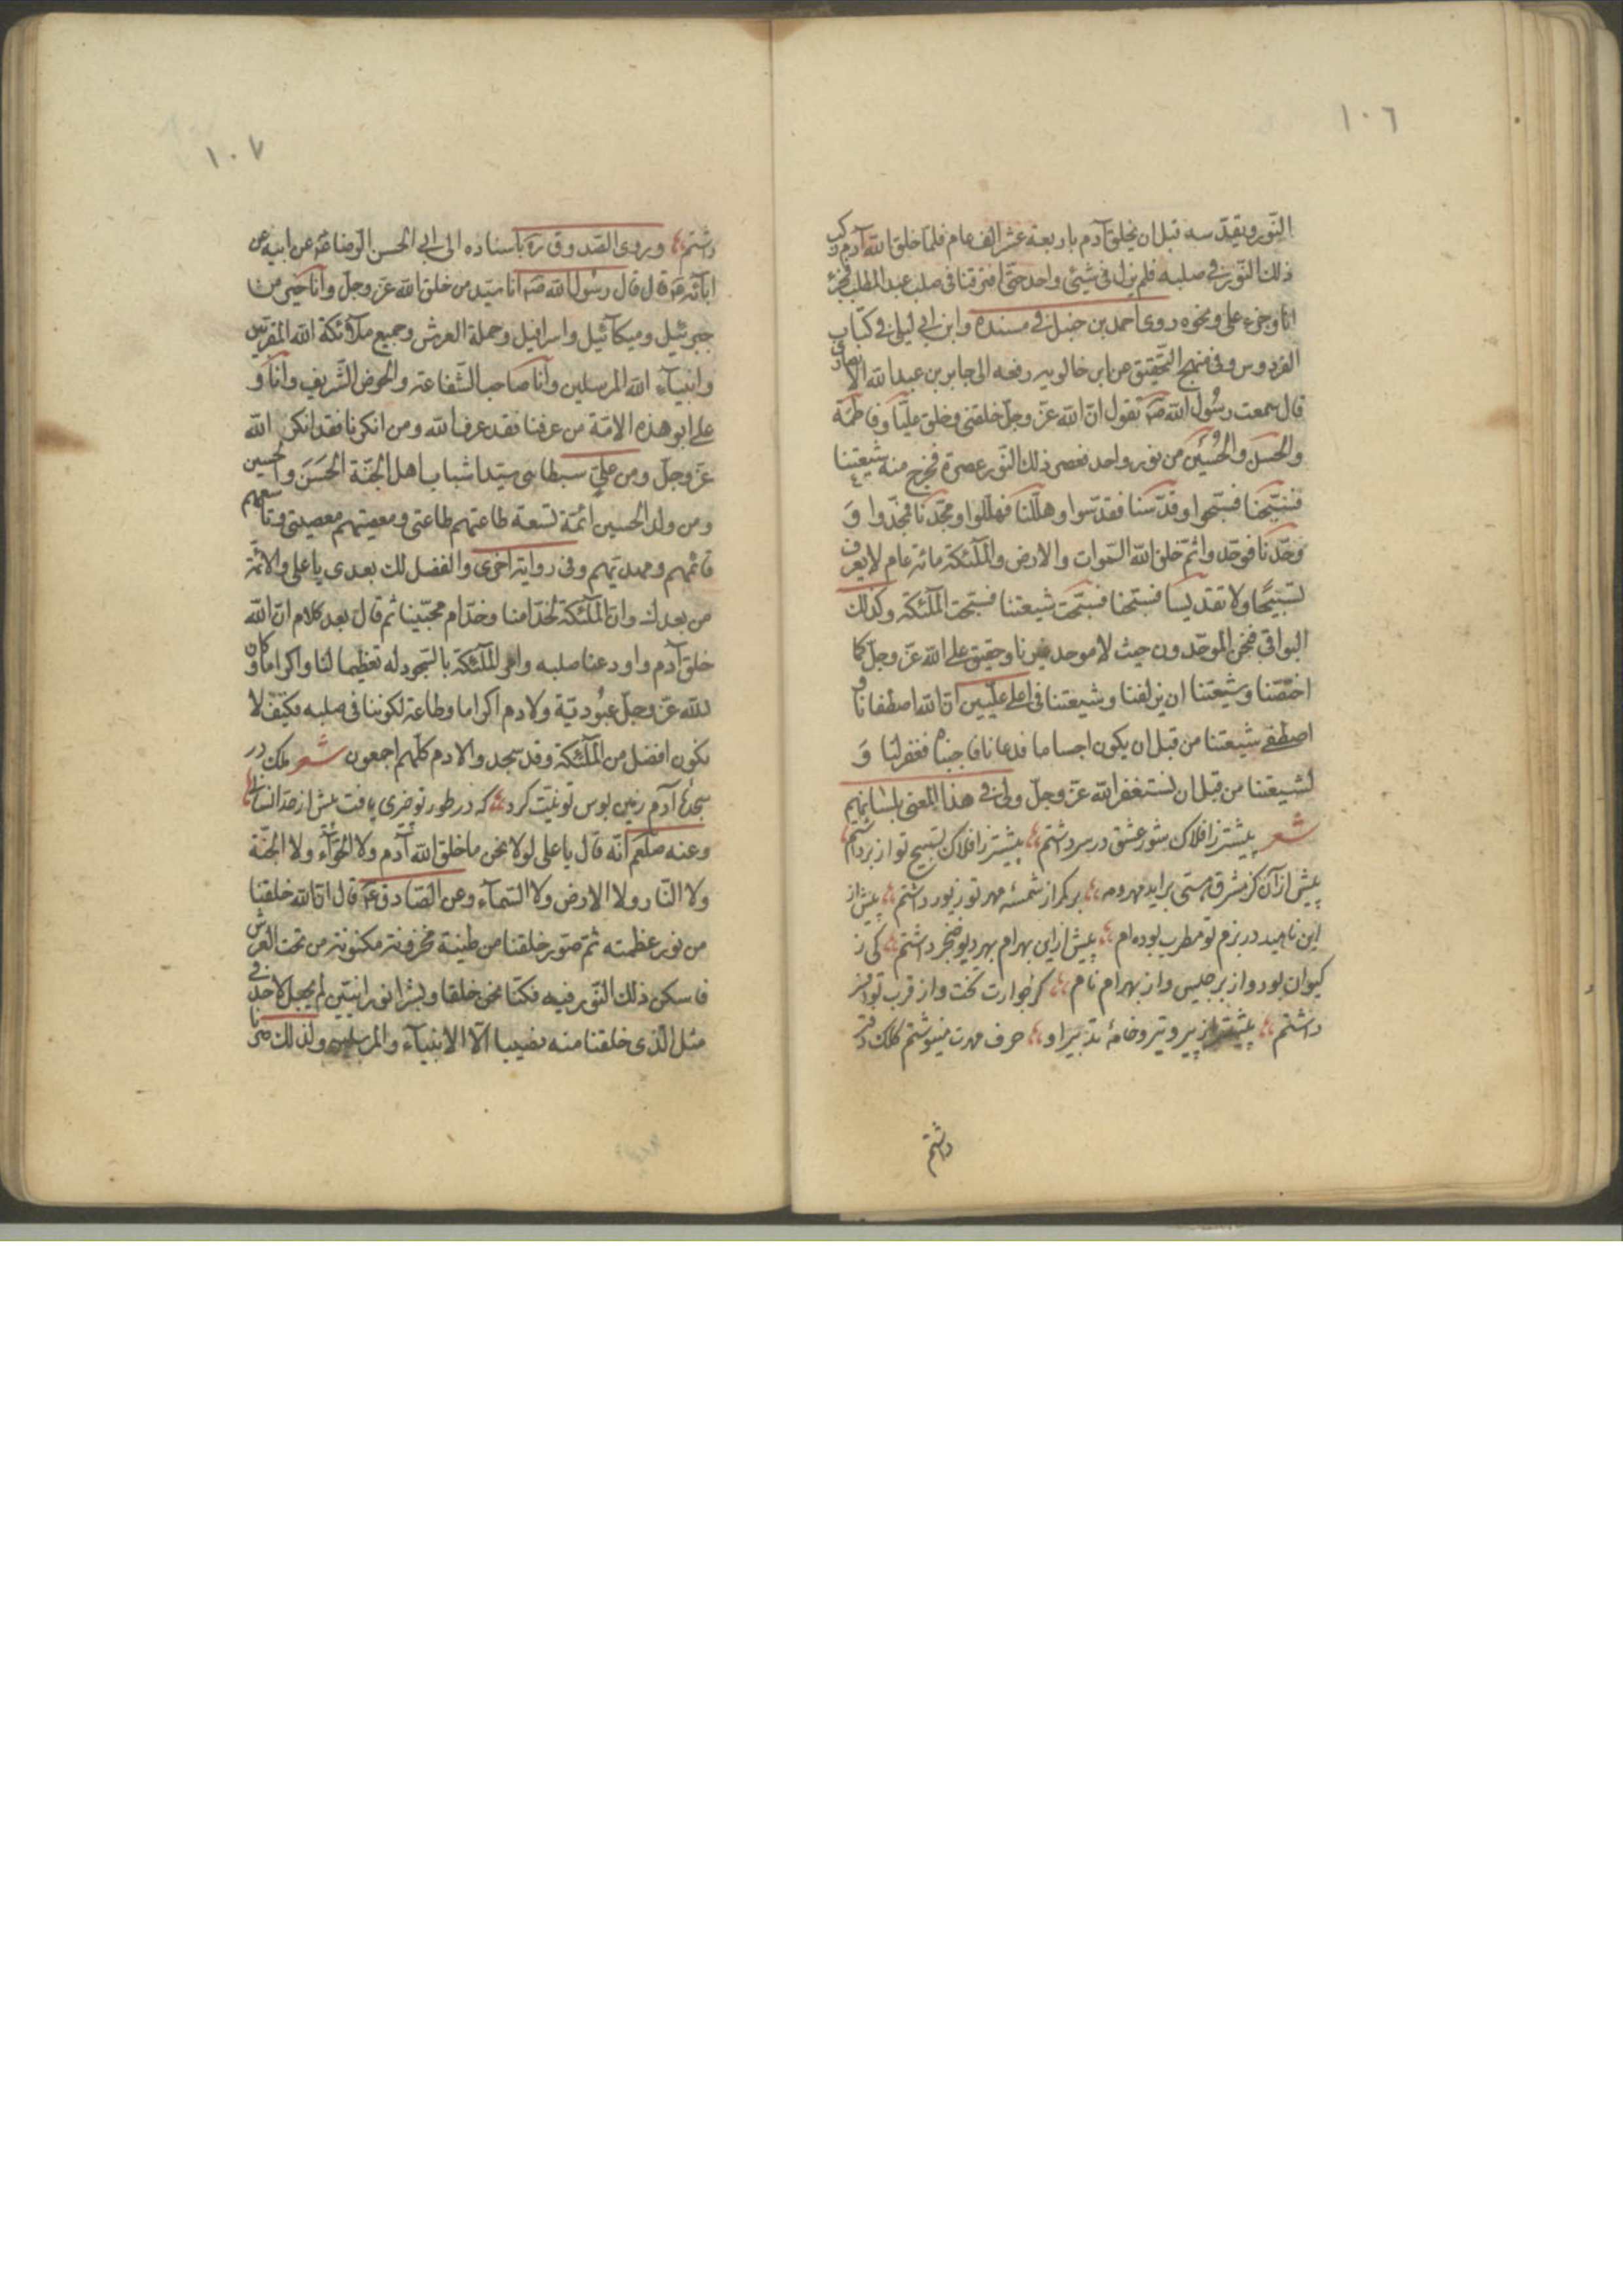 ١٠٦
النّور ويقدّسه قبل ان يخلق آدم باربعة عشر الف عام فلمّا خلق الله آدم ركب
ذلك النّور في صلبه فلم يزل في شيئ واحد حتّى افترقنا في صلب عبد المطلب فجزء
انا وجزء علي ونحوه روى احمد بن حنبل في مسنده وابن ابي ليلى في كتاب
الفردوس وفي منهج التحقيق عن ابن خالويه رفعه الى جابر بن عبد الله الانصارى
قال سمعت رسُول الله صه يقول انّ الله عزّ وجلّ خلقنى وخلق عليّا وفاطمة
والحسَن والحُسَين من نور واحد فعصر ذلك النّور عصرة فخرج منه شيعتنا
فسبّحنا فسبّحوا وقدّسنا فقدّسوا وهلّلنا فهلّلوا ومجّدنا فمجّدوا وَ
وحّدنا فوحّدوا ثمّ خلق الله السّموات والارض والملٓئكة مائة عام لا يعرف
تسبيحًا ولا تقديسا فسبّحنا فسبّحت شيعتنا فسبّحت الملٓئكة وكذلك
البواقي فنحن الموحّدون حيث لا موحد غيرنا وحقيق على الله عزّ وجلّ كما
اختصّنا وشيعتنا ان يزلفنا وشيعتنا في اعلى عليّين انّ الله اصطفانا و
اصطفى شيعتنا من قبل ان يكون اجساما فدعانا فاجبناه فغفر لنا وَ
لشيعتنا من قبل ان نستغفر الله عزّ وجلّ ولي في هذا المعنى بلسانهم
شعر پيشتر ز افلاك شور عشق در سر داشتم پيشتر ز افلاك تسبيح تو از بر داشتم
پيش از آن كز مشرق هستى برايد مهر ومه بر كمر از شمسهٔ مهر تو زيور داشتم پيش از
اين ناهيد در بزم تو مطرب بوده ام پيش از اين بهرام بهر ديو خنجر داشتم كى ز
كيوان بود واز برجيس واز بهرام نام كز جوارت تخت واز قرب تو افسر
داشتم پيشتر از پير وتير وخامهٔ تدبير او حرف مهرت مينوشتم كلك دفتر
داشتم
١٠٧
داشتم وروى الصّدوق ره باسناده الى ابي الحسن الرّضا عه عن ابيه عن
ابائه عه قال قال رسُول الله صه انا سيّد من خلق الله عزّ وجلّ وانا خير من
جبرئيل وميكآئيل واسرافيل وحملة العرش وجميع ملآئكة الله المقرّبين
وانبيآء الله المرسلين وانا صاحب الشّفاعة والحوض الشّريف وانا و
على ابو هذه الامّة من عرفنا فقد عرف الله ومن انكرنا فقد انكر الله
عزّ وجلّ ومن عليّ سبطاى سيّدا شباب اهل الجنّة الحَسَن والحسين
ومن ولد الحسين ائمّة تسعة طاعتهم طاعتى ومعصيتهم معصيتى وتاسعهم
قائمهم ومهديّهم وفي رواية اخرى والفضل لك بعدى يا على والائمّة
من بعدك وانّ الملٓئكة لخدّامنا وخدّام محبّينا ثم قال بعد كلام انّ الله
خلق آدم واودعنا صلبه وامر الملٓئكة بالسّجود له تعظيما لنا واكراما وكان
لله عزّ وجلّ عبُوديّة ولادم اكراما وطاعة لكوننا في صلبه فكيف لا
نكون افضل من الملٓئكة وقد سجدوا لادم كلّهم اجمعون شعر ملك در
سجدهٔ آدم زمين بوس تو نيّت كرد كه در طور تو چيزى يافت بيش از حدّ انسانى
وعنه صلّعم انّه قال يا على لولا نحن ما خلق الله آدم ولا الحوّآء ولا الجنّة
ولا النّار ولا الارض ولا السّمآء وعن الصّادق عه قال انّ الله خلقنا
من نور عظمته ثمّ صوّر خلقنا من طينة مخزونة مكنونة من تحت العرش
فاسكن ذلك النّور فيه فكنّا نحن خلقا وبشرا نورانيّين لم يجعل لاحد في
مثل الّذى خلقنا منه نصيبا الّا الانبيآء والمرسلين ولذلك صرنا